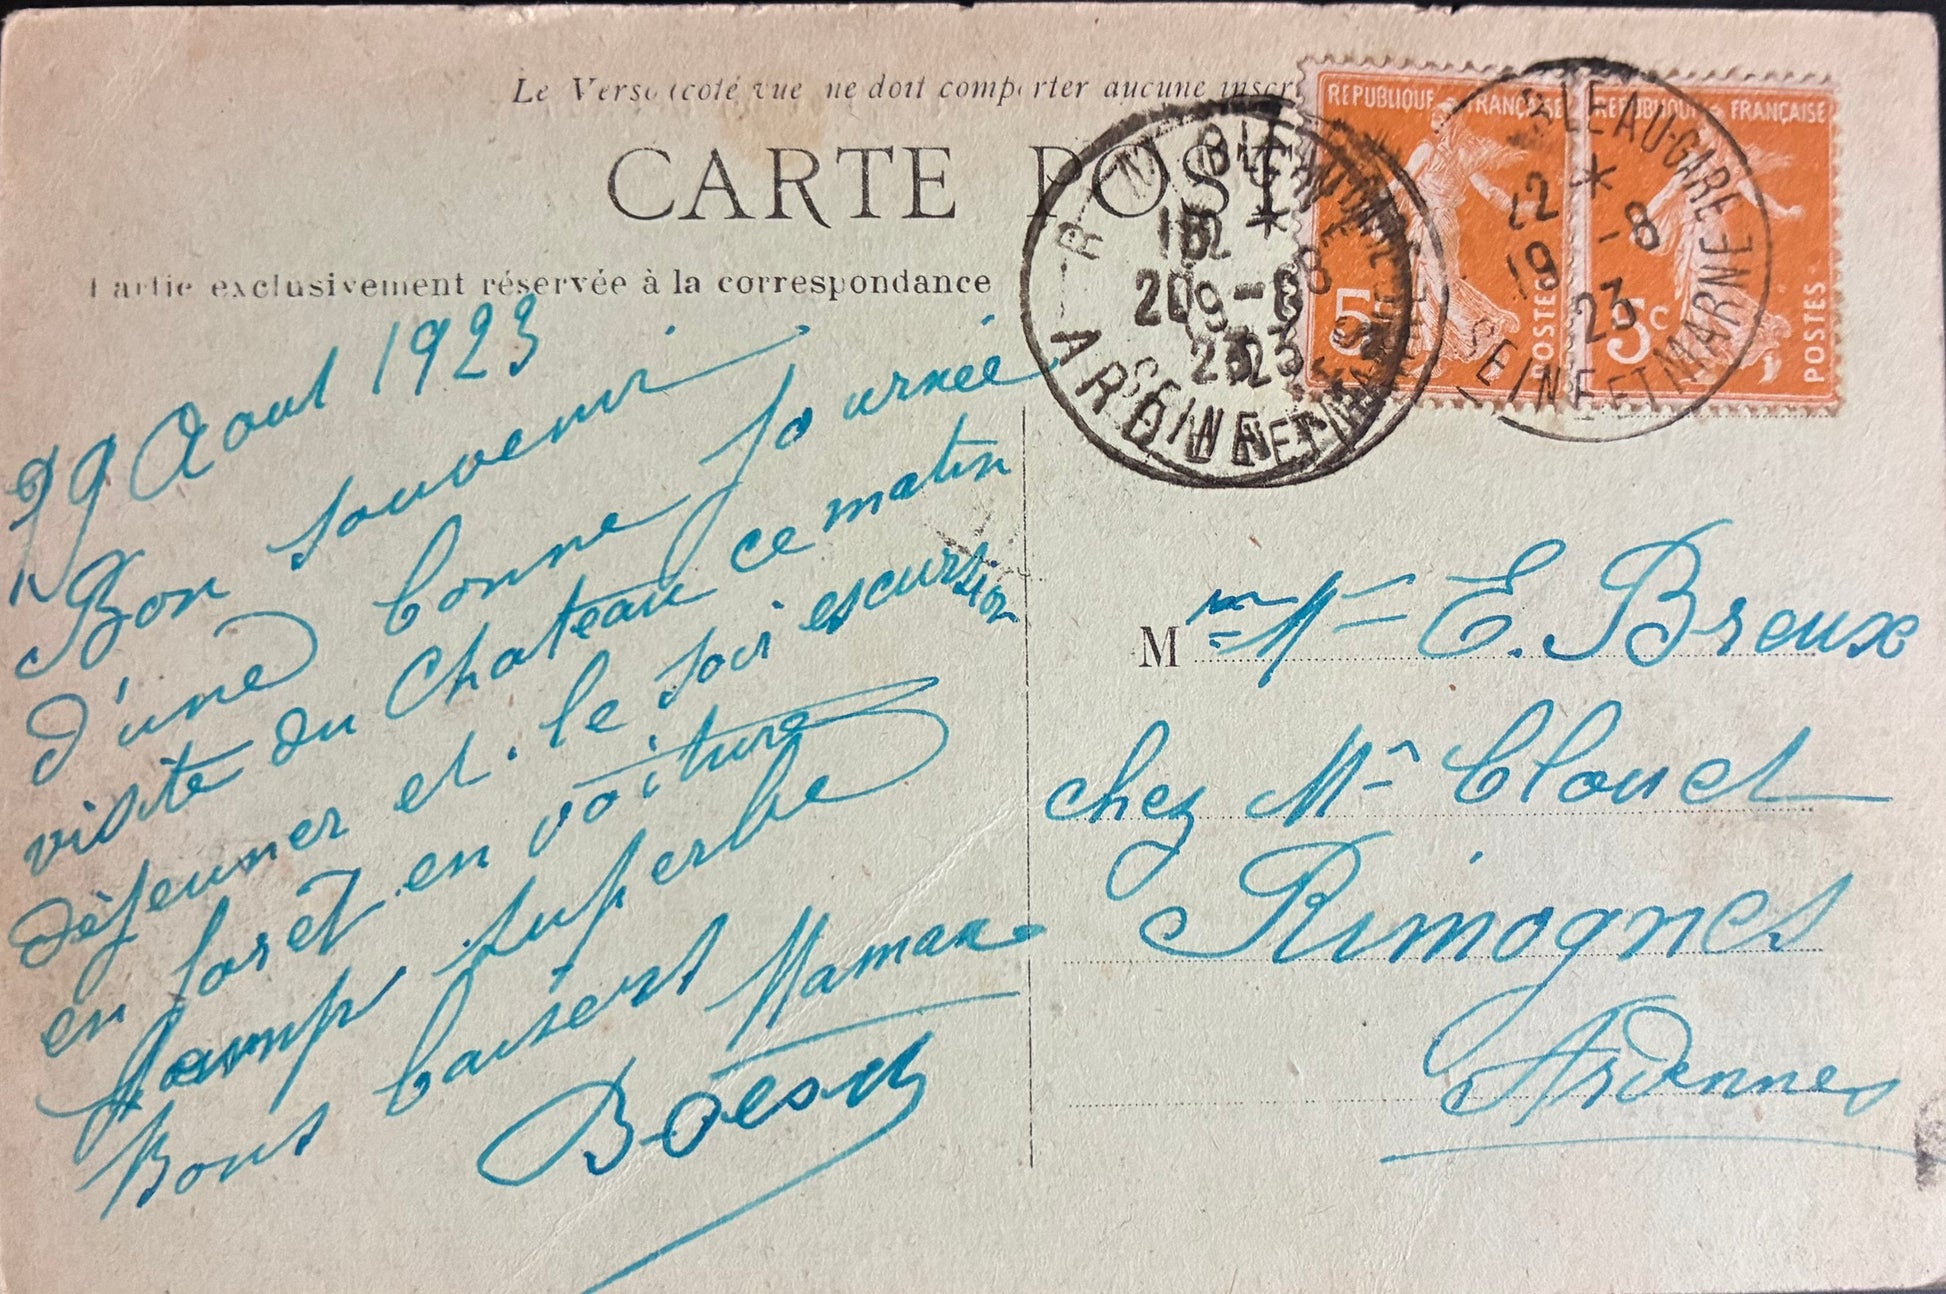 Le Verso (coté vue ne doit comporter aucune inscr
CARTE POST
Partie exclusivement réservée à la correspondance
REPUBLIQUE FRANÇAISE
5
POSTES
REPUBLIQUE FRANÇAISE
5c
POSTES
BLEAU-GARE
*
12 -8
19 23
SEINE ET MARNE
ARDENNE
Aout 1923
Bon souvenir
d'une bonne journée
visite du Chateau ce matin
déjeuner et le soir escursion
en foret en voiture
superbe
Bons baisers Maman
M me Mr E. Breux
chez Mr Clouet
Rimognes
Ardennes